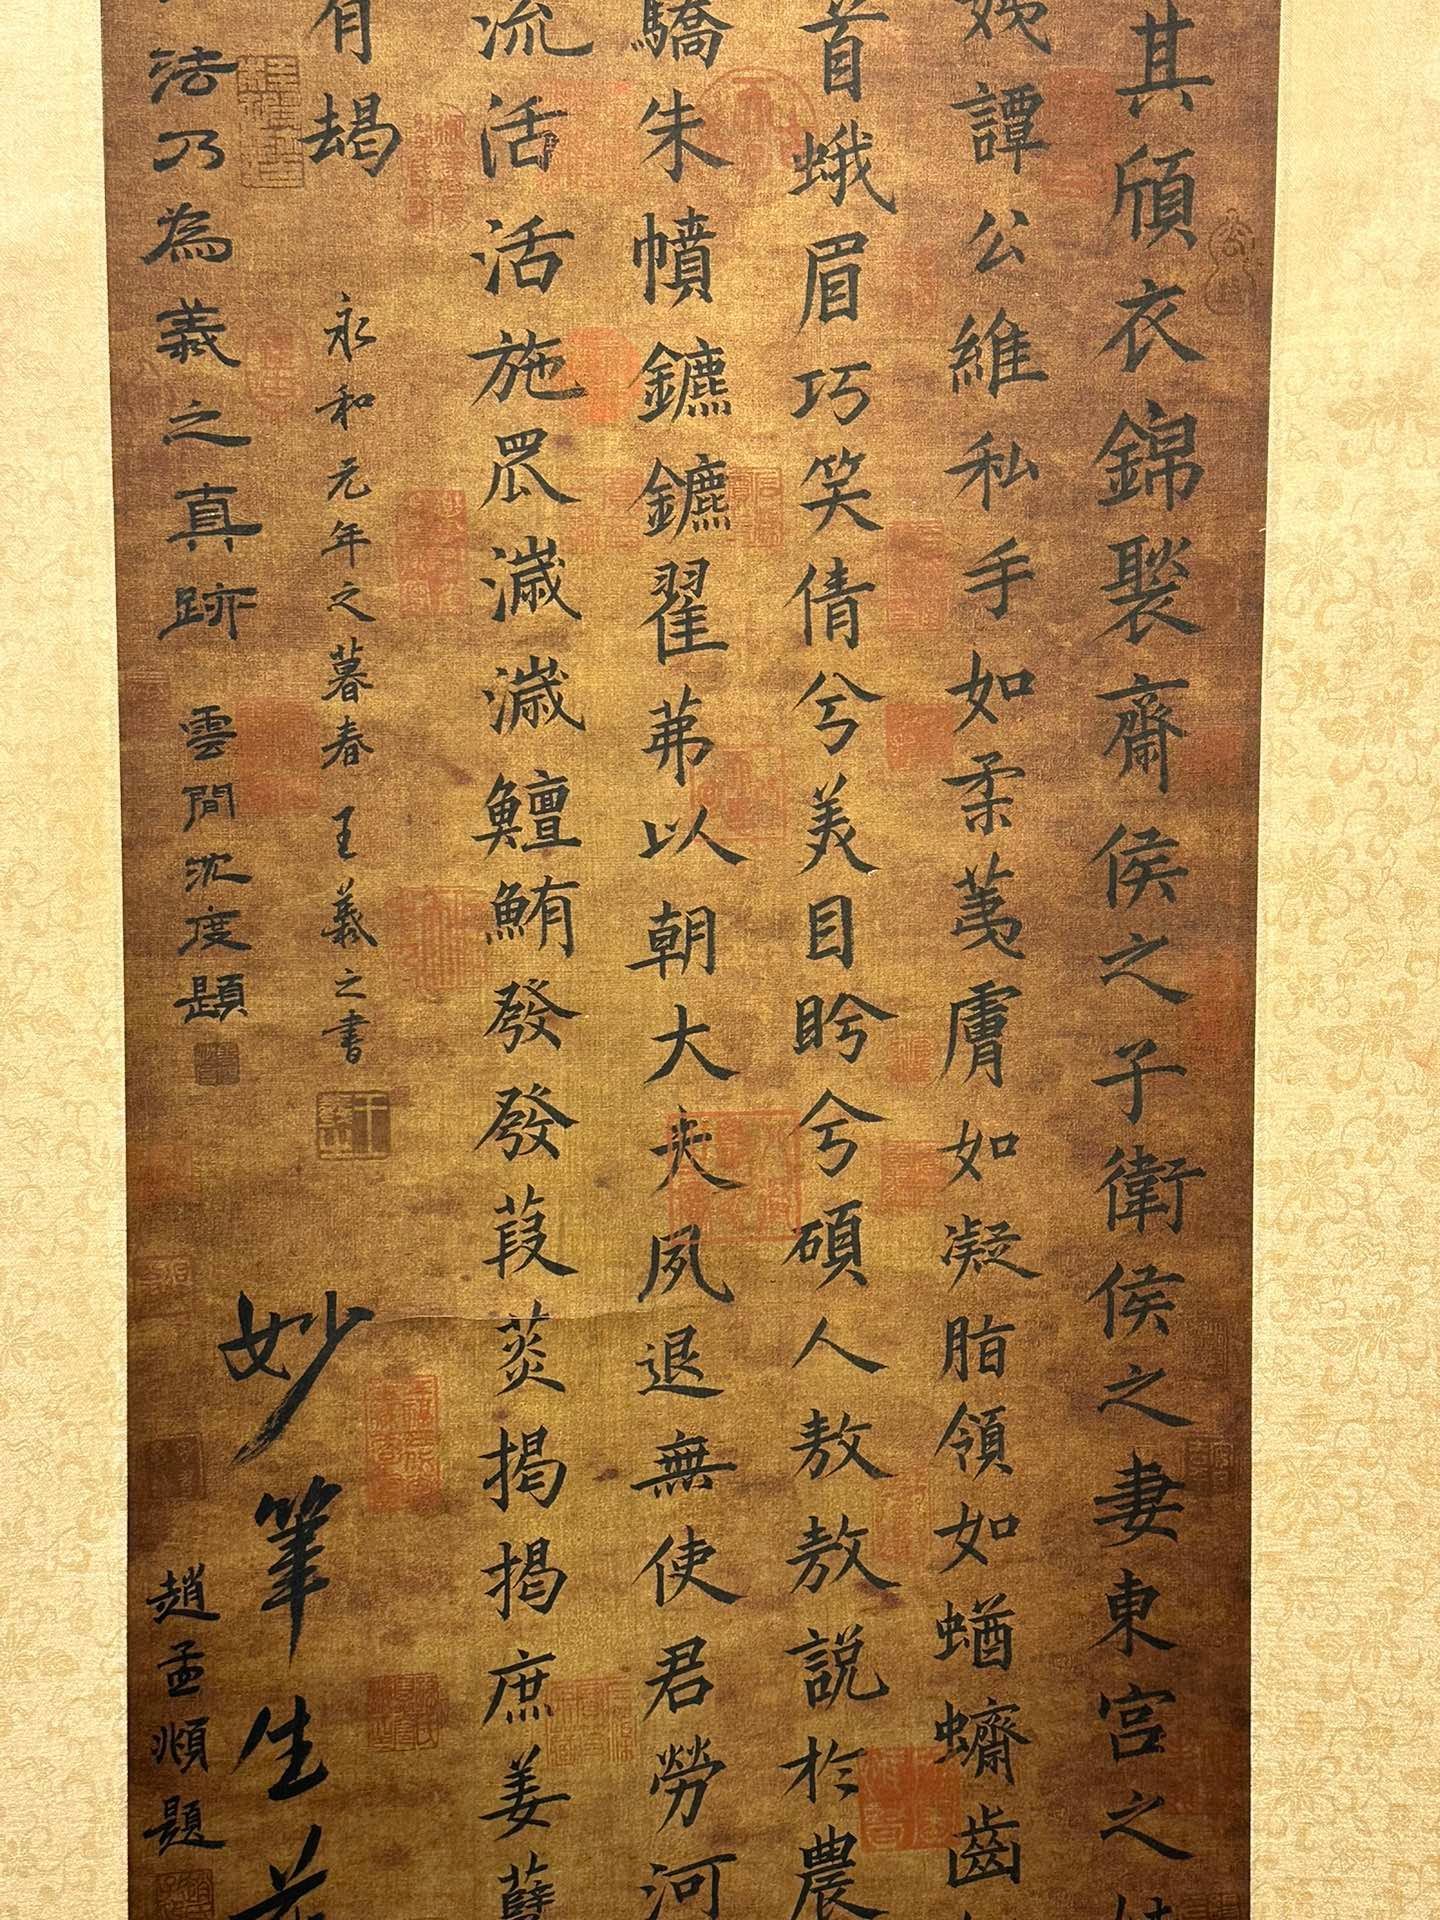 其頎衣錦褧齋侯之子衛侯之妻東宮之
姨譚公維私手如柔荑膚如凝脂領如蝤蠐齒
首蛾眉巧笑倩兮美目盻兮碩人敖敖説於農
驕朱幩鑣鑣翟茀以朝大夫夙退無使君勞河
流活活施罛濊濊鱣鮪發發葭菼揭揭庶姜孽
有朅
永和元年之暮春王羲之書
妙筆生花
法乃為羲之真跡雲間沈度題
趙孟頫題